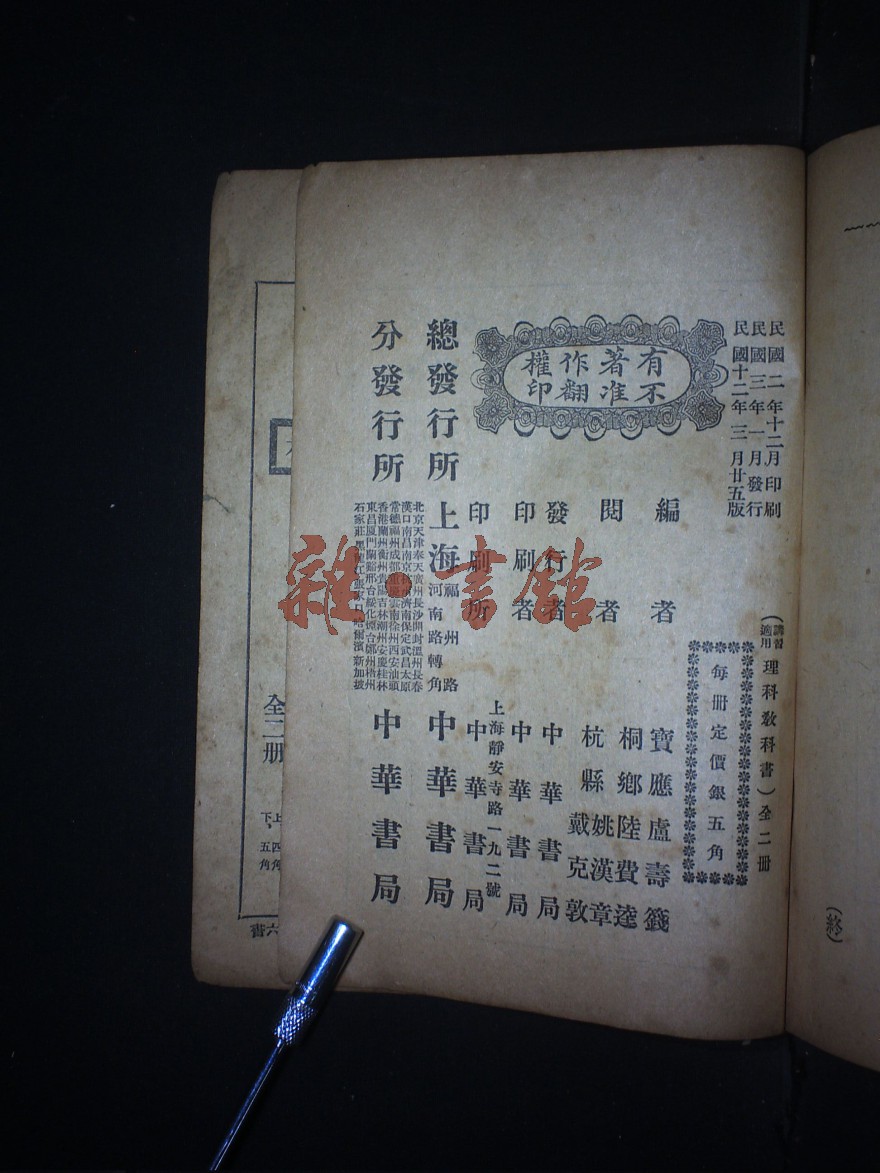 民國二年十二月印刷
民國三年一月發行
民國十二年三月廿五版
(講習適用理科教科書)全二冊
每冊定價銀五角
有著作權
不准翻印
編者 寶應盧壽籛
閱者 桐鄉陸費逵
杭縣姚漢章
戴克敦
發行者 中華書局
印刷者 中華書局
上海靜安寺路一九二號
印刷所 中華書局
總發行所 上海福州路河南路轉角 中華書局
分發行所 中華書局
北京天津奉天廣州長沙開封溫州長春
漢口南昌南京杭州濟南保定武昌太原
常德福州成都重慶雲南徐州西安汕頭
香港蘭州衡州貴陽吉林潮州安慶桂林
東昌厦門蘭谿邢台綏化煙台鄭州梧州
石家莊黑龍江張家口哈爾濱新加坡
雜書館
(終)
全二册
上、四角
下、五角